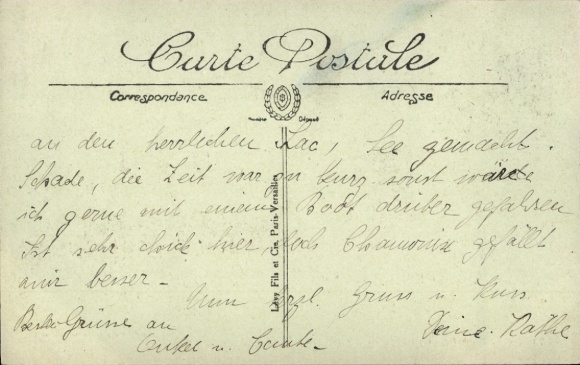 Carte Postale
Correspondance
Adresse
Lévy Fils et Cie, Paris-Versailles
an den herrlichen Lac, See gemacht.
Schade, die Zeit war zu kurz sonst wäre
ich gerne mit einem Boot drüber gefahren
Ist sehr chick hier, doch Chamonix gefällt
mir besser -
Nun hrzl. Gruss u. Kuss
Deine Käthe
Beste Grüsse an
Onkel u. Tante -